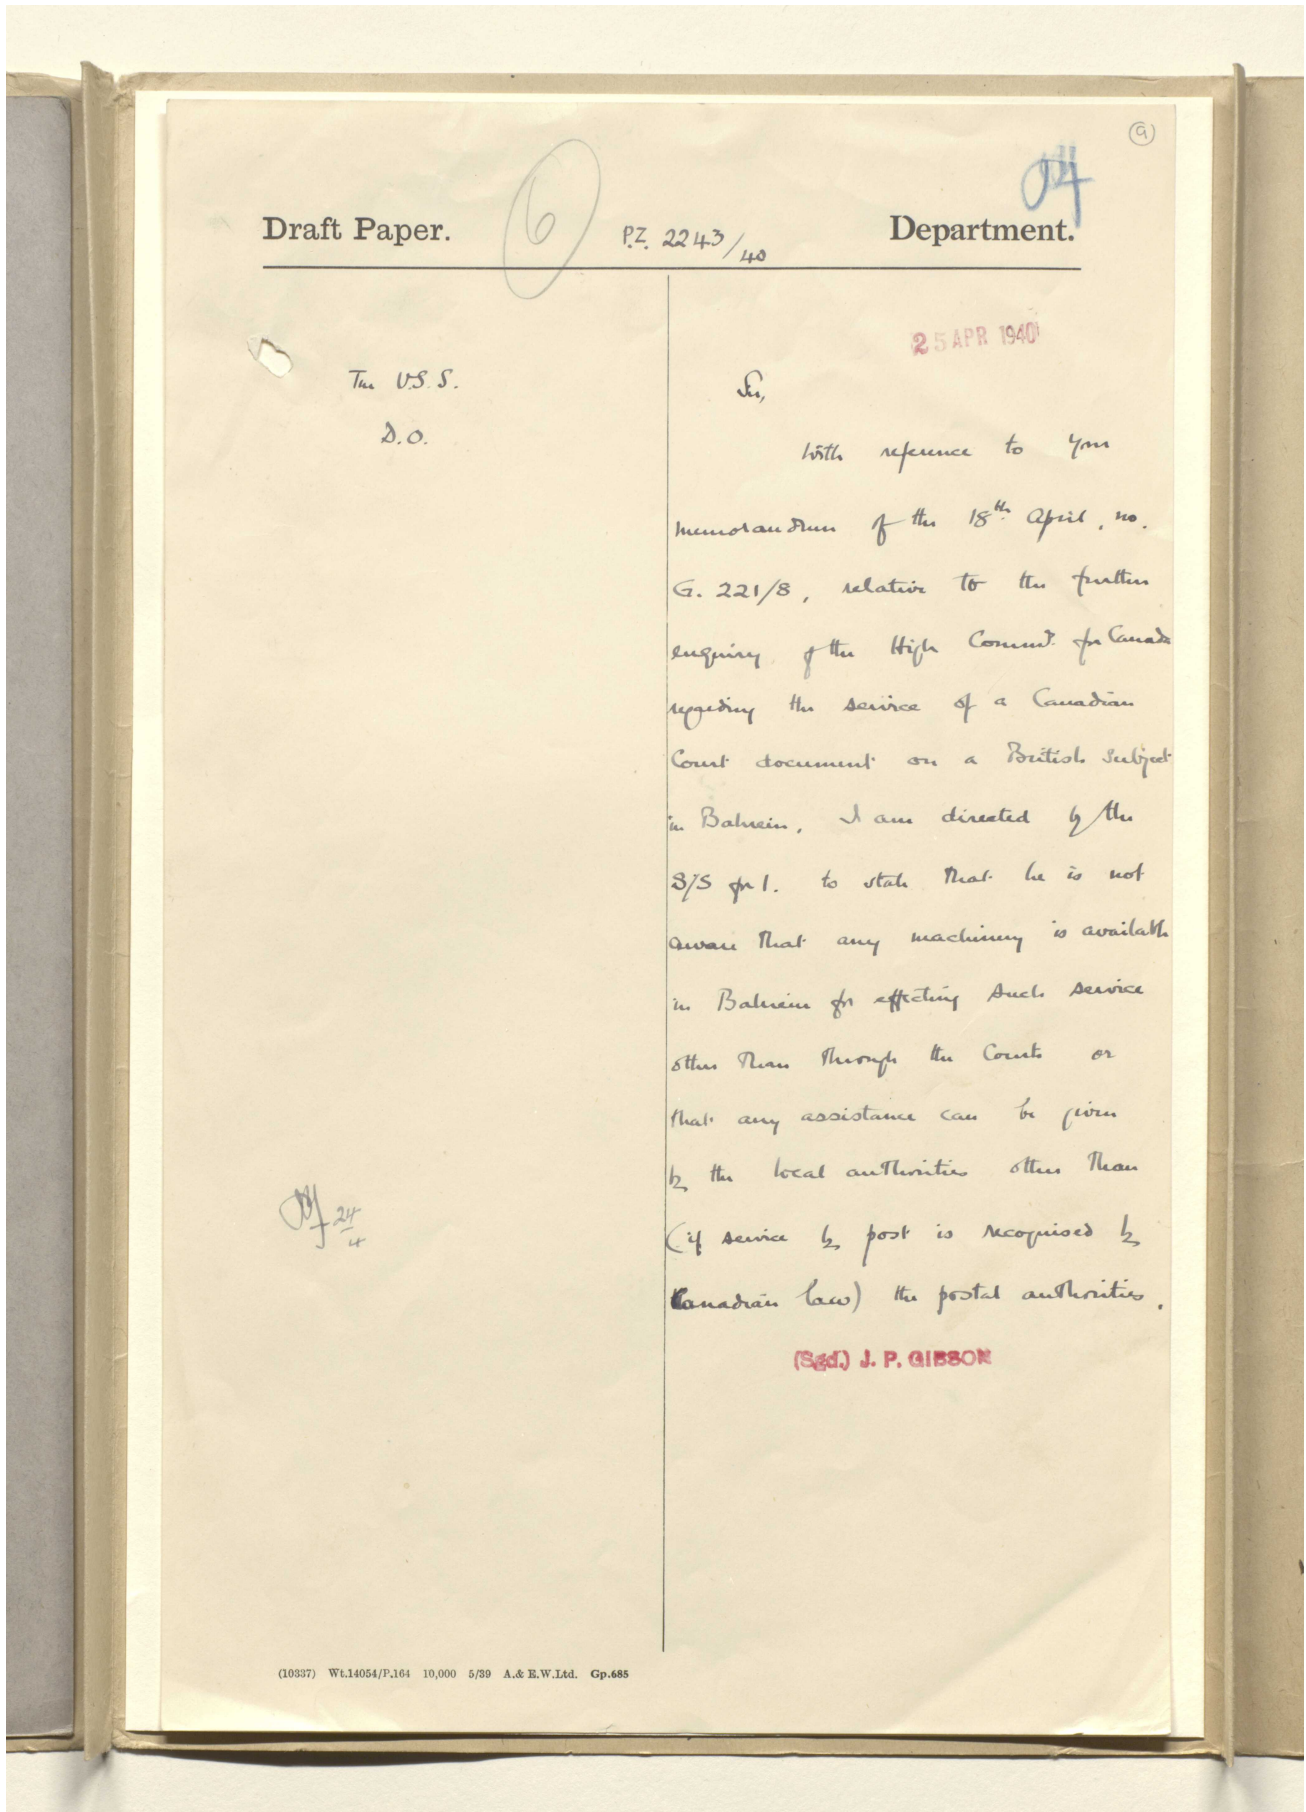 9
6
Draft Paper.
P.Z. 2243/40
Department.
25 APR 1940
The U.S.S.
D.O.
Sir,
With reference to your
memorandum of the 18th April, no.
G. 221/8, relative to the further
enquiry of the High Commr. for Canada
regarding the service of a Canadian
Court document on a British Subject
in Bahrein, I am directed by the
S/S for I. to state that he is not
aware that any machinery is available
in Bahrein for effecting such service
other than through the Courts or
that any assistance can be given
by the local authorities other than
(if service by post is recognised by
Canadian law) the postal authorities.
24/4
(Sgd.) J. P. GIBSON
(10337) Wt.14054/P.164 10,000 5/39 A.& E.W.Ltd. Gp.685